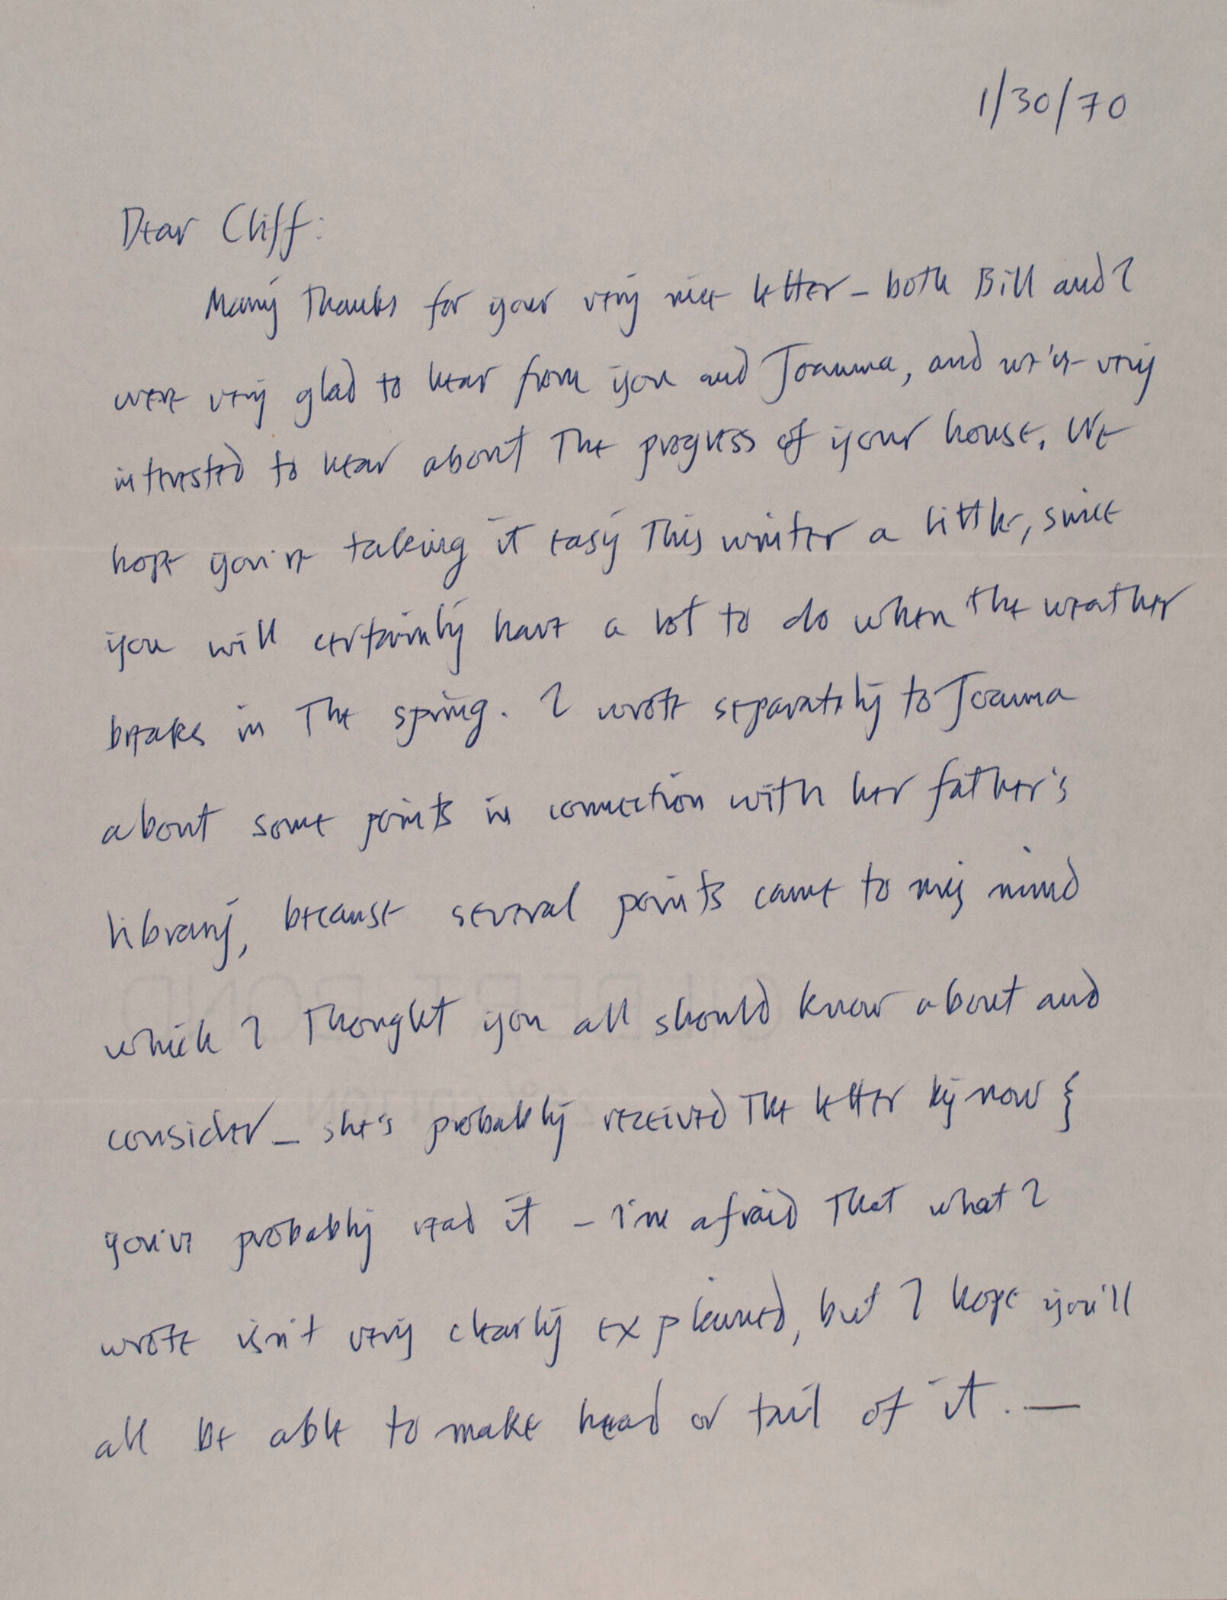 1/30/70
Dear Cliff:
Many thanks for your very nice letter – both Bill and I
were very glad to hear from you and Joanna, and we're very
interested to hear about the progress of your house. We
hope you're taking it easy this winter a little, since
you will certainly have a lot to do when the weather
breaks in the spring. I wrote separately to Joanna
about some points in connection with her father's
library, because several points came to my mind
which I thought you all should know about and
consider – she's probably received the letter by now &
you've probably read it – I'm afraid that what I
wrote isn't very clearly explained, but I hope you'll
all be able to make head or tail of it. —